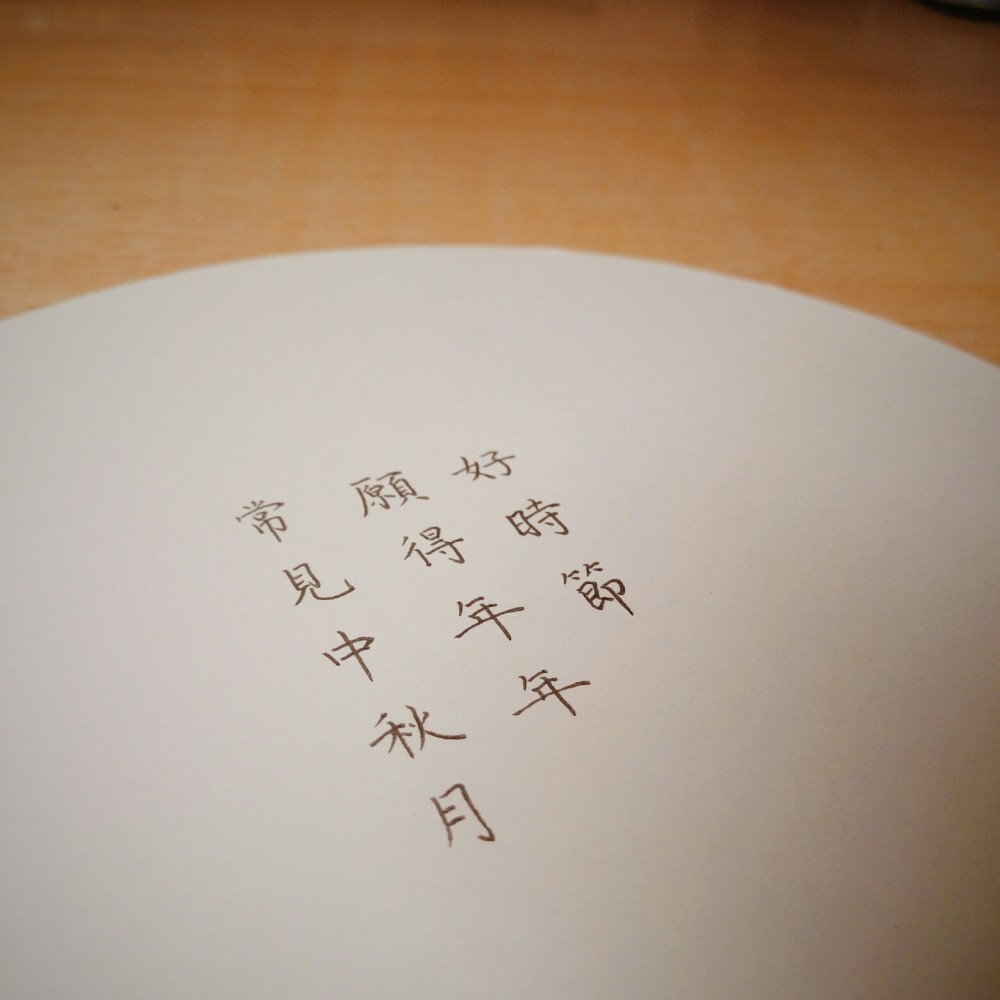 好時節
願得年年
常見中秋月